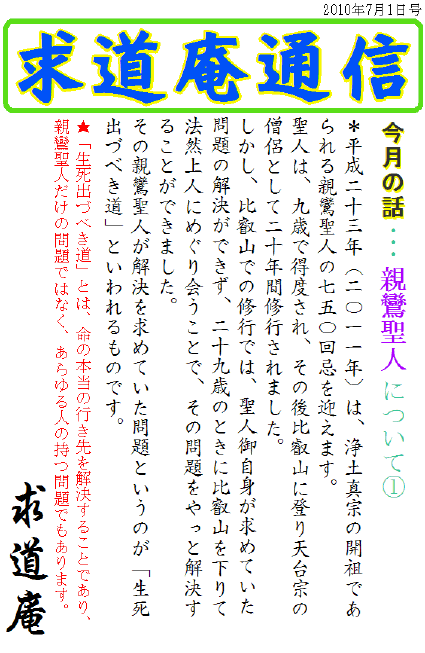 2010年7月1日号
求道庵通信
今月の話…親鸞聖人について①
＊平成二十三年（二〇一一年）は、浄土真宗の開祖であ
られる親鸞聖人の七五〇回忌を迎えます。
聖人は、九歳で得度され、その後比叡山に登り天台宗の
僧侶として二十年間修行されました。
しかし、比叡山での修行では、聖人御自身が求めていた
問題の解決ができず、二十九歳のときに比叡山を下りて
法然上人にめぐり会うことで、その問題をやっと解決す
ることができました。
その親鸞聖人が解決を求めていた問題というのが「生死
出づべき道」といわれるものです。
★「生死出づべき道」とは、命の本当の行き先を解決することであり、
親鸞聖人だけの問題ではなく、あらゆる人の持つ問題でもあります。
求道庵